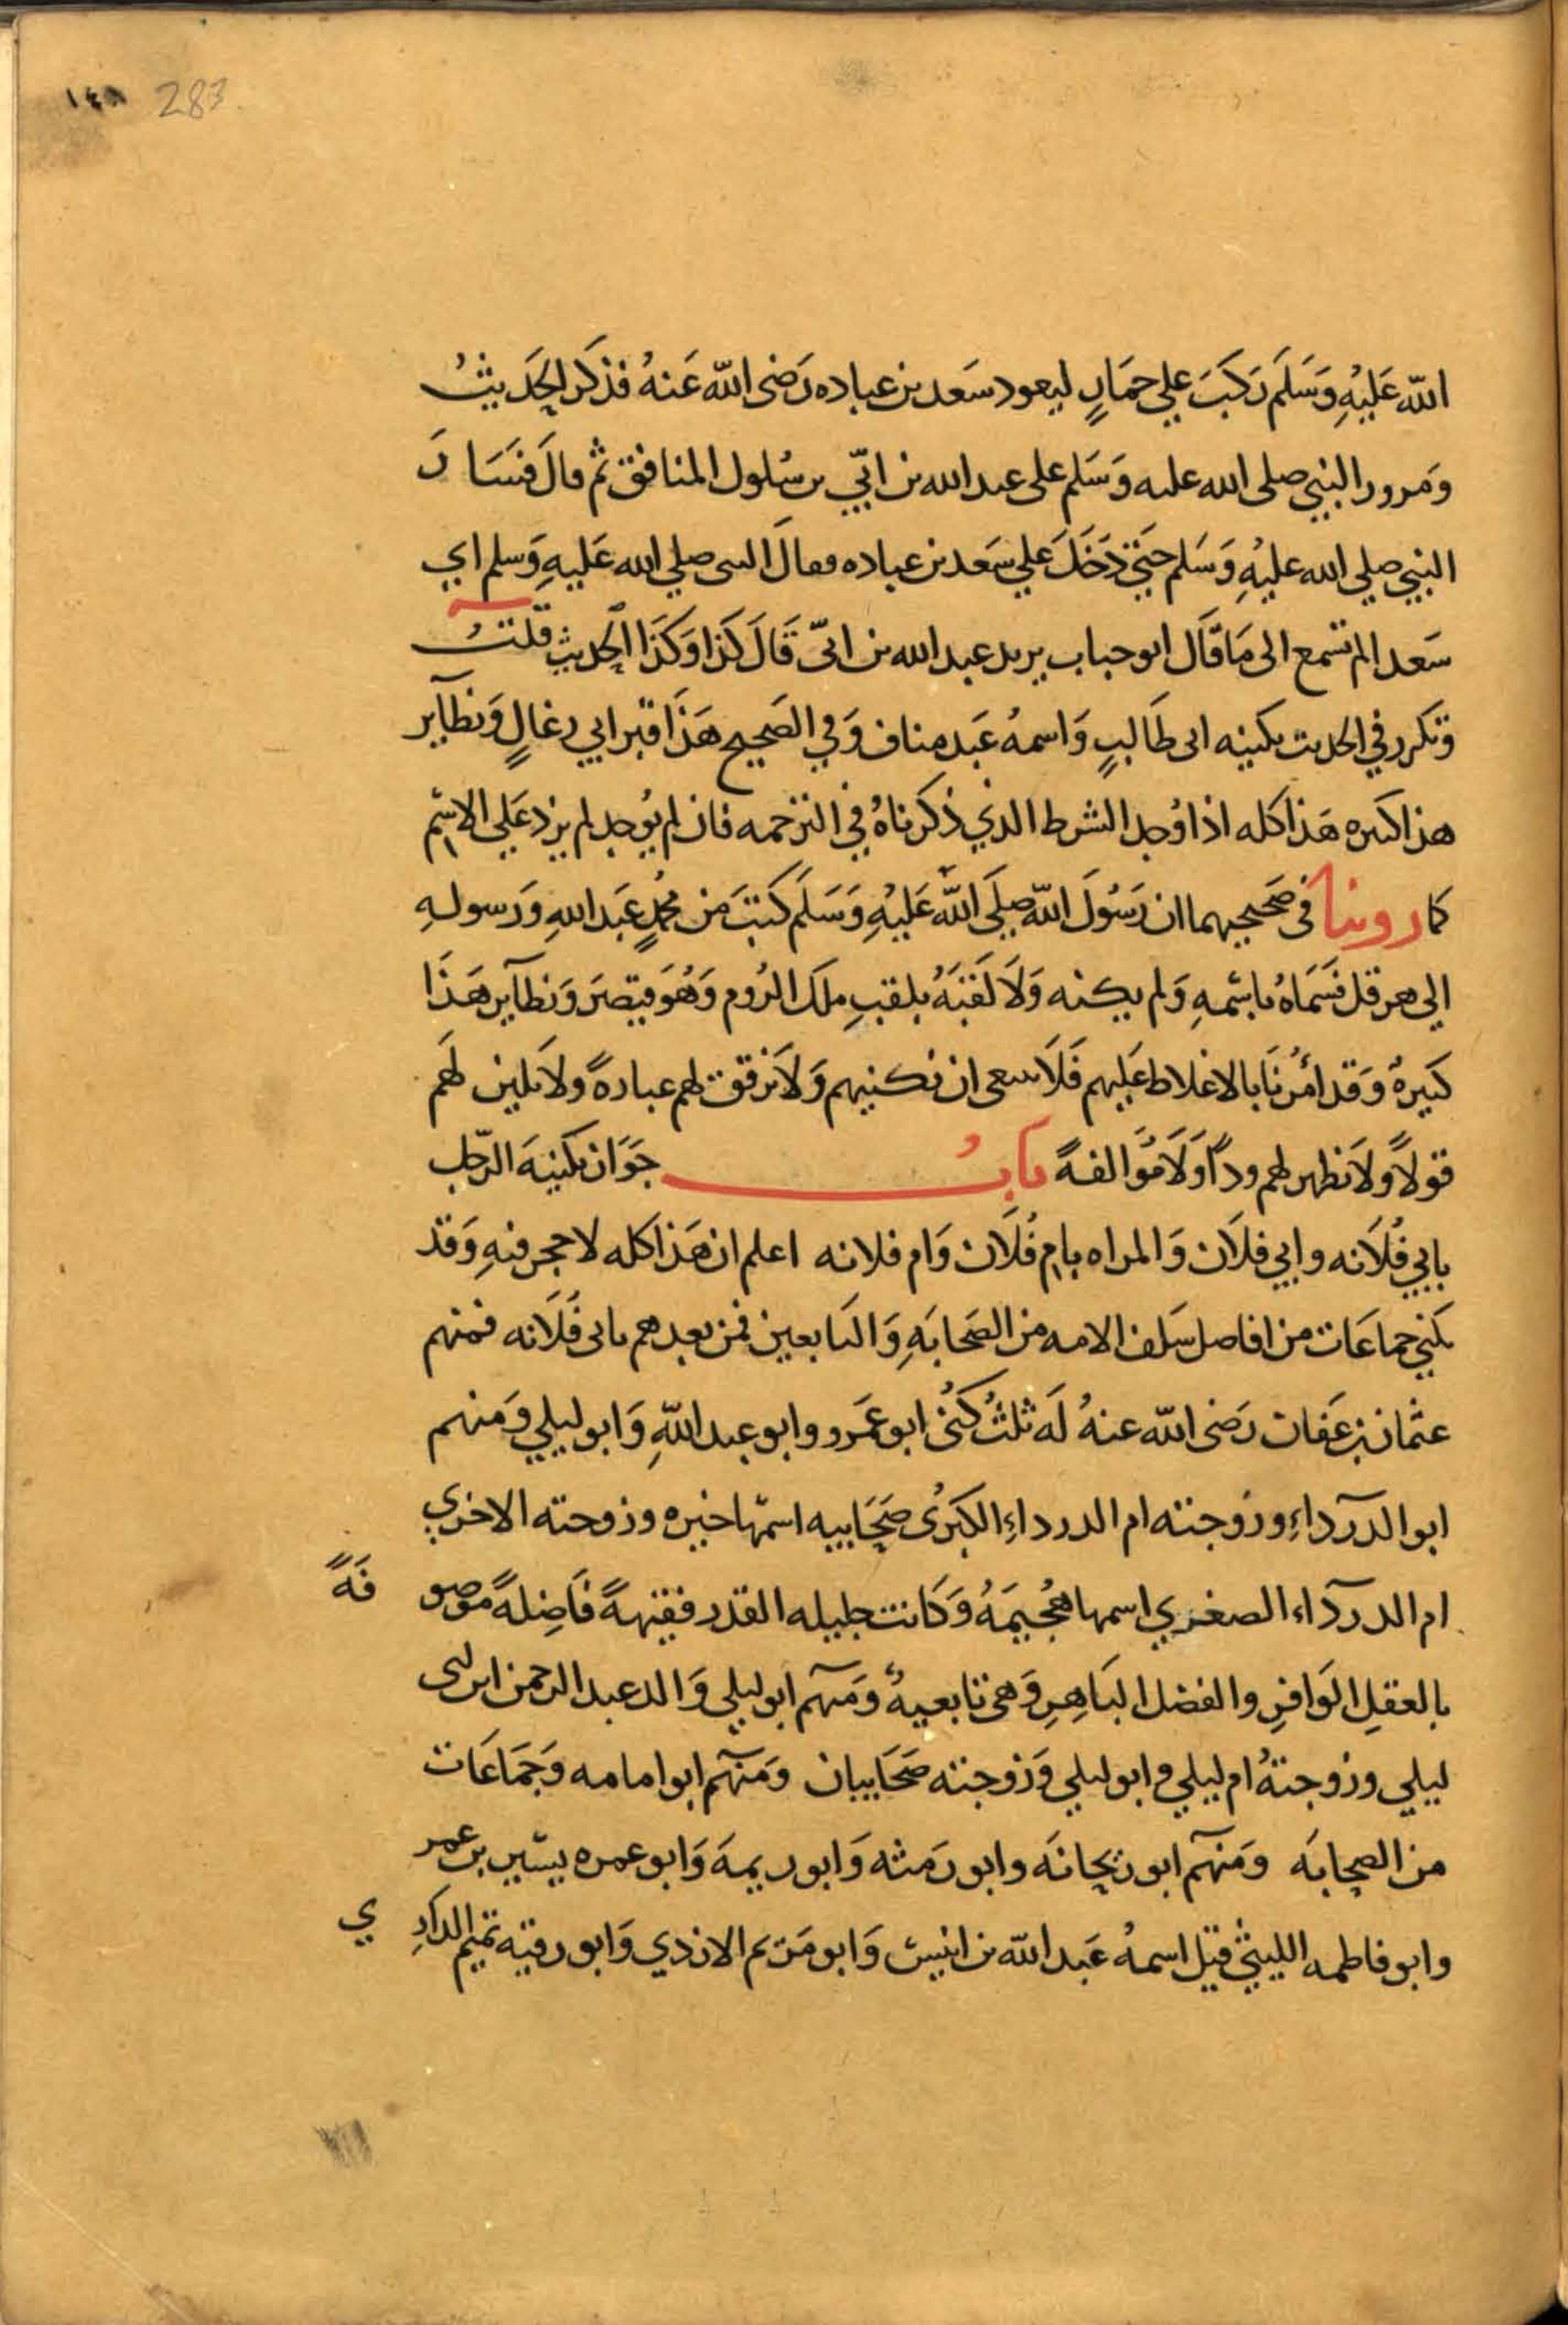 ١٤٨ 283
الله عَلَيْهِ وَسَلَم رَكبَ علي حمَارٍ ليعود سَعد بن عباده رَضى الله عَنهُ فذكَر الحَديثُ
وَمرور النبي صلى الله عليه وَسَلم على عبد الله بن ابيّ بن سُلول المنافق ثم قالَ فسَارَ
النبي صلي الله عليْهِ وَسَلم حتى دَخَلَ علي سَعد بن عباده فقالَ النبى صلي الله عَليهِ وَسلم اي
سَعد الم تسمع الى مَا قَال ابو حباب يريد عبد الله بن ابىّ قَالَ كَذا وَكَذا الحديث قلتُ
وَتكرر في الحديث تكنيه ابى طَالبٍ وَاسمهُ عَبد مناف وَفي الصَحيح هَذا قبر ابي رغالٍ وَنظآير
هذا كثيره هَذا كله اذا وُجد الشرط الذي ذكرناهُ في الترجمه فان لم يوُجد لم يزد عَلي الاسم
كما روينا فى صَحيحيهما ان رَسُولَ الله صلَي الله عَليْهِ وَسَلَم كَتبَ من محُمدٍ عَبد اللهِ وَرَسولهِ
الي هرقل فسَمَاهُ باسمهِ وَلم يكنه وَلَا لَقبَهُ بلقبِ ملَك الرُوم وَهُوَ قيصرَ وَنظآير هَذا
كثيرهٌ وَقد امُرنَا بالاغلاط عَليهم فَلَا ينبغى ان نكنيهم وَلَا نرقق لهم عبارهً ولا نلين لهَم
قولاً وَلَا نظهر لهم وداً وَلَا مُوَالفهً بابُ جَوَاز تكنيهَ الرّجل
بابي فُلَانه وابي فلَان وَالمراه بام فُلَان وَام فلانه اعلم ان هَذا كله لا حجر فيهِ وَقد
تكني جماعَات من افاضل سَلف الامه من الصَحابَهِ وَالتابعين فمن بعدهم بابى فُلَانه فمنهم
عثمان بن عَفان رَضى الله عنهُ لَه ثلثُ كَنُى ابو عَمَرو وابو عبد اللهِ وَابو ليلي وَمنهم
ابو الدرَدآءِ وزوجته ام الدرداءِ الكبرُى صَحَابيه اسمّها خيره وزوجته الاخري
ام الدردَآء الصغري اسمها هُجُيمَهُ وَكَانت جليله القدر فقيهةً فَاضِلهً موصوفَهً
بالعقلِ الوَافرِ والفضل البَاهِرِ وَهى تابعيهٌ وَمنهم ابو ليلي وَالد عبد الرحمن ابن ابى
ليلي وزوجتهُ ام ليلي وابو ليلي وَزوجته صحَابيان وَمنهم ابو امامه وَجمَاعَات
من الصحابَه وَمنهم ابو ريحانَه وابو رَمثه وَابو ريمهَ وَابو عمره بشير بن عمر
وابو فاطمه الليثي قيل اسمهُ عَبد الله بن انيس وَابو مَريم الازدي وَابو رقيه تميم الداري